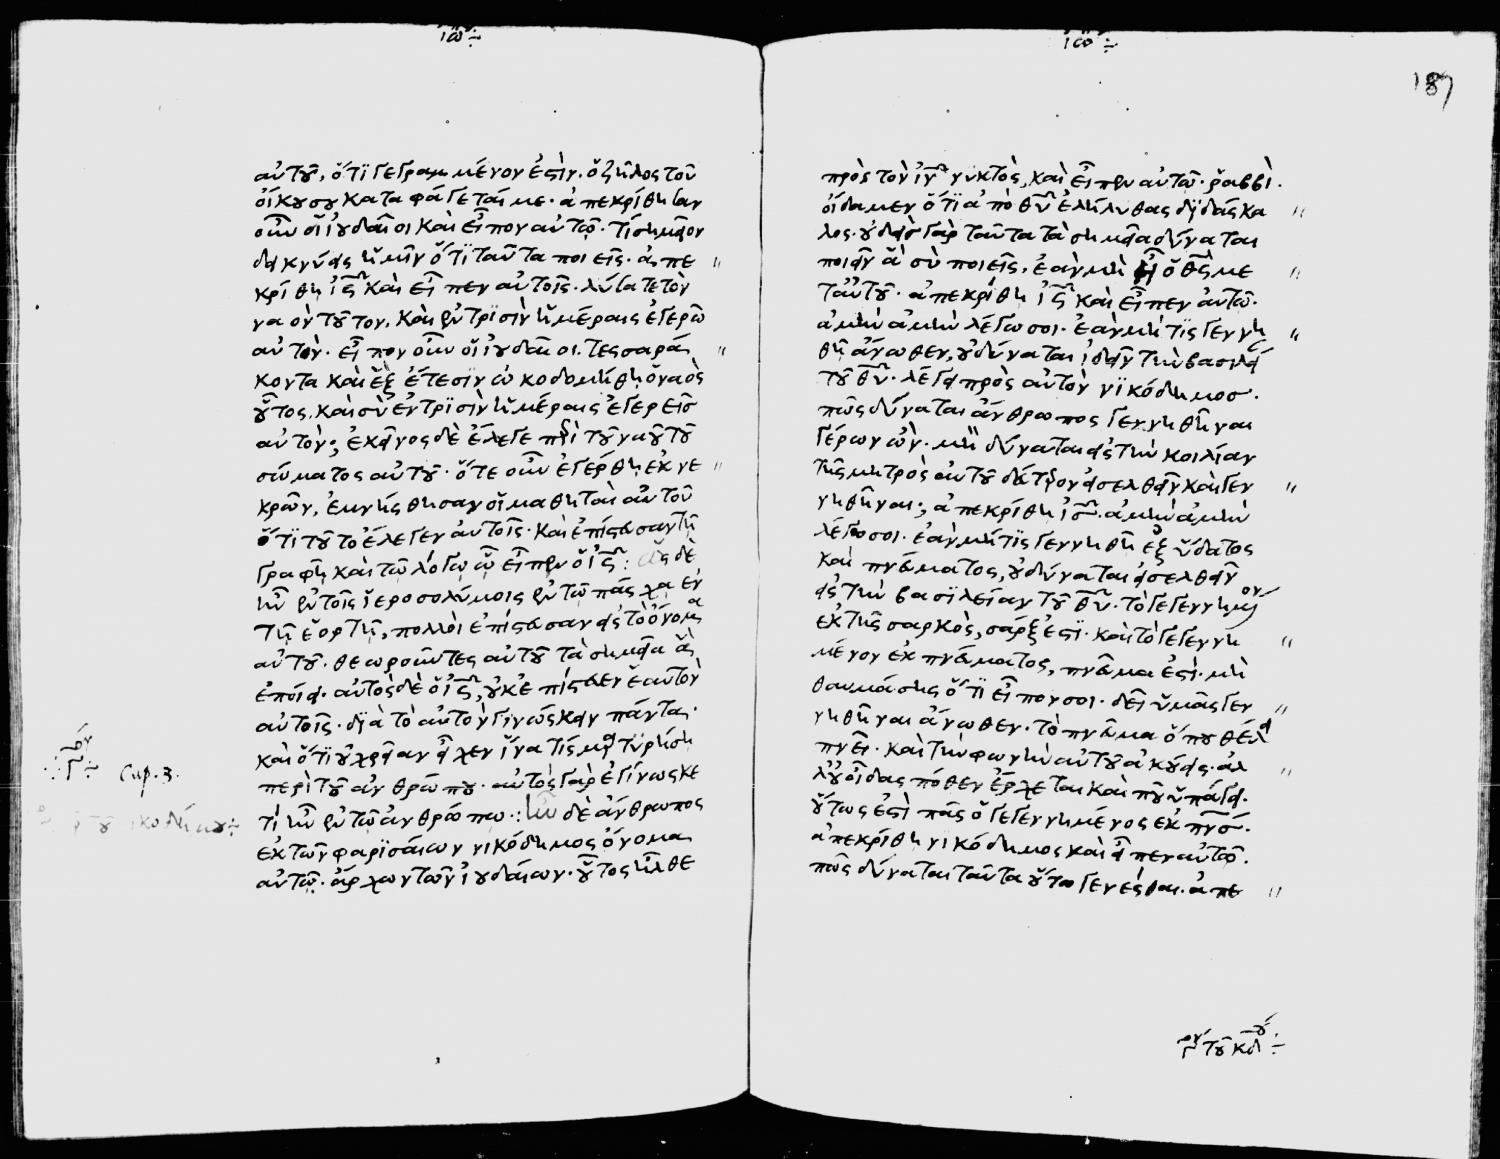 ἰω ÷
αὐτοῦ, ὅτι γεγραμμένον ἐστὶν. ὁ ζῆλος τοῦ
οἴκου σου καταφάγεταί με. ἀπεκρίθησαν
οὖν οἱ ἰουδαῖοι καὶ εἶπον αὐτῷ. τί σημεῖον
δεικνύεις ἡμῖν ὅτι ταῦτα ποιεῖς. ἀπε
κρίθη ἰς καὶ εἶπεν αὐτοῖς. λύσατε τὸν
ναὸν τοῦτον, καὶ ἐν τρισὶν ἡμέραις ἐγερῶ
αὐτόν. εἶπον οὖν οἱ ἰουδαῖοι. τεσσαρά
κοντα καὶ ἓξ ἔτεσιν ὠκοδομήθη ὁ ναὸς
οὗτος, καὶ σὺ ἐν τρισὶν ἡμέραις ἐγερεῖς
αὐτόν; ἐκεῖνος δὲ ἔλεγε περὶ τοῦ ναοῦ τοῦ
σώματος αὐτοῦ. ὅτε οὖν ἐγέρθη ἐκ νε
κρῶν, ἐμνήσθησαν οἱ μαθηταὶ αὐτοῦ
ὅτι τοῦτο ἔλεγεν αὐτοῖς. καὶ ἐπίστευσαν τῇ
γραφῇ καὶ τῷ λόγῳ ᾧ εἶπεν ὁ ἰς : ὡς δὲ
ἦν ἐν τοῖς ἱεροσολύμοις ἐν τῷ πάσχα ἐν
τῇ ἑορτῇ, πολλοὶ ἐπίστευσαν εἰς τὸ ὄνομα
αὐτοῦ. θεωροῦντες αὐτοῦ τὰ σημεῖα ἃ
ἐποίει. αὐτὸς δὲ ὁ ἰς, οὐκ ἐπίστευεν ἑαυτὸν
αὐτοῖς. διὰ τὸ αὐτὸν γινώσκειν πάντας.
καὶ ὅτι οὐ χρείαν εἶχεν ἵνα τὶς μαρτυρήσῃ
περὶ τοῦ ἀνθρώπου. αὐτὸς γὰρ ἐγίνωσκε
τί ἦν ἐν τῷ ἀνθρώπῳ .: ἦν δὲ ἄνθρωπος
ἐκ τῶν φαρισαίων νικόδημος ὄνομα
αὐτῷ. ἄρχων τῶν ἰουδαίων. οὗτος ἦλθε
Cap. 3.
ἰω ÷
187
πρὸς τὸν ἰν νυκτὸς, καὶ εἶπεν αὐτῷ. ῥαββὶ.
οἴδαμεν ὅτι ἀπὸ θυ ἐλήλυθας διδάσκα
λος. οὐδεὶς γὰρ ταῦτα τὰ σημεῖα δύναται
ποιεῖν ἃ σὺ ποιεῖς, ἐὰν μὴ ᾖ ὁ θς με
τ αὐτοῦ. ἀπεκρίθη ἰς καὶ εἶπεν αὐτῷ.
ἀμὴν ἀμὴν λέγω σοι. ἐὰν μή τις γεννη
θῇ ἄνωθεν, οὐ δύναται ἰδεῖν τὴν βασιλεί
τοῦ θυ. λέγει πρὸς αὐτὸν νικόδημος.
πῶς δύναται ἄνθρωπος γεννηθῆναι
γέρων ὤν. μὴ δύναται εἰς τὴν κοιλίαν
τῆς μητρὸς αὐτοῦ δεύτερον εἰσελθεῖν καὶ γεν
νηθῆναι; ἀπεκρίθη ἰς. ἀμὴν ἀμὴν
λέγω σοι. ἐὰν μή τις γεννηθῇ ἐξ ὕδατος
καὶ πνεύματος, οὐ δύναται εἰσελθεῖν
εἰς τὴν βασιλείαν τοῦ θυ. τὸ γεγεννημένον
ἐκ τῆς σαρκὸς, σάρξ ἐστι. καὶ τὸ γεγεννη
μένον ἐκ πνεύματος, πνεῦμα ἐστι. μὴ
θαυμάσῃς ὅτι εἶπον σοι. δεῖ ὑμᾶς γεν
νηθῆναι ἄνωθεν. τὸ πνεῦμα ὅπου θέλει
πνεῖ. καὶ τὴν φωνὴν αὐτοῦ ἀκούεις. ἀλ
λ οὐκ οἶδας πόθεν ἔρχεται καὶ ποῦ ὑπάγει.
οὕτως ἐστὶ πᾶς ὁ γεγεννημένος ἐκ πνς.
ἀπεκρίθη νικόδημος καὶ εἶπεν αὐτῷ.
πῶς δύναται ταῦτα οὕτω γενέσθαι. ἀπε